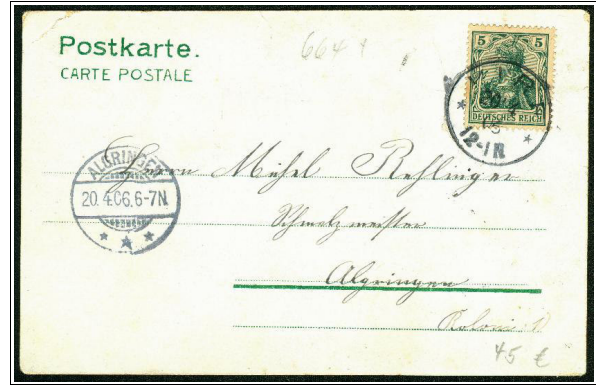 Postkarte.
CARTE POSTALE
664
5 5
DEUTSCHES REICH
12-1 N
ALGRINGEN
20. 4.06. 6-7N
Herrn Michel Rehlinger
Schmelzmeister
Algringen
45 €